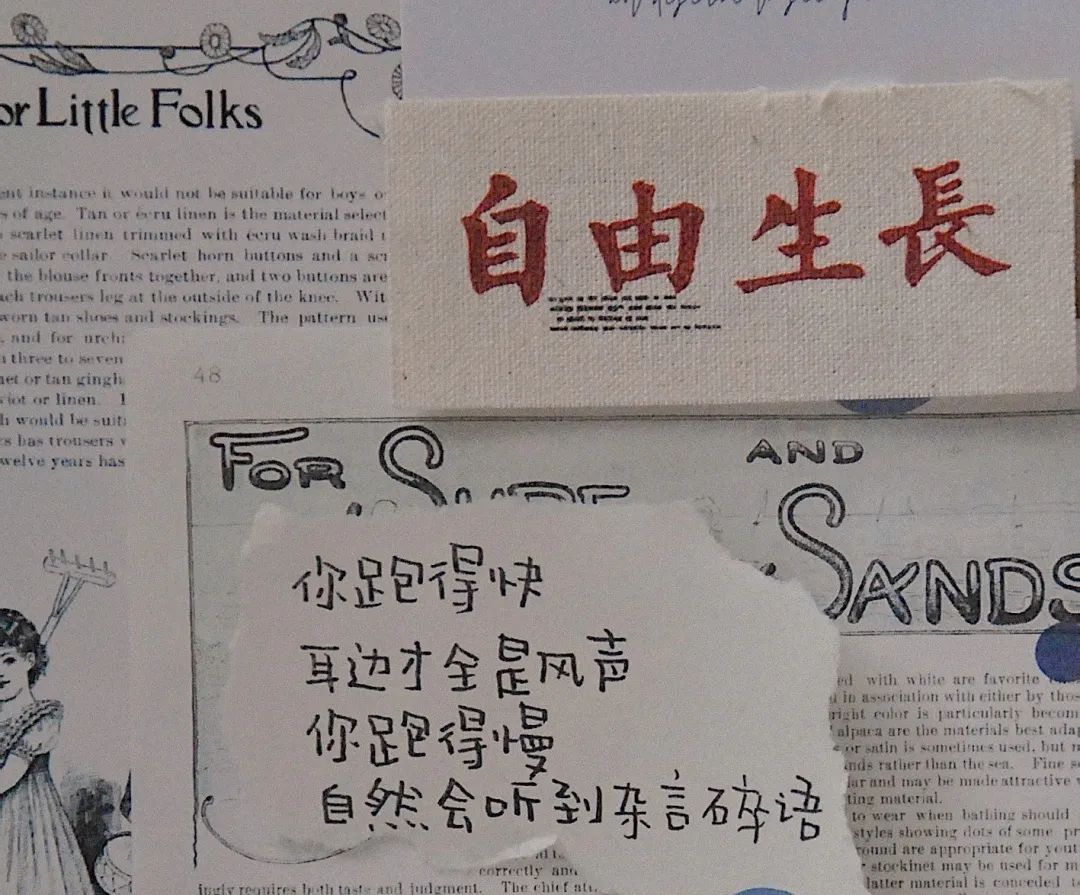 or Little Folks
ent instance it would not be suitable for boys
s of age. Tan or écru linen is the material select
scarlet linen trimmed with écru wash braid
sailor collar. Scarlet horn buttons and a
the blouse fronts together, and two buttons are
ach trousers leg at the outside of the knee. Wit
worn tan shoes and stockings. The pattern us
and for urchi
three to seven
net or tan gingh
viot or linen.
h would be suit
s has trousers
welve years has
自由生長
48
FOR
AND
SANDS
你跑得快
耳边才全是风声
你跑得慢
自然会听到杂言碎语
ed with white are favorite
in association with either by thos
right color is particularly becom
alpaca are the materials best adap
or satin is sometimes used, but
nds rather than the sea. Fine
ar and may be made attractive
ting material.
to wear when bathing should
styles showing dots of some pr
round are appropriate for yout
stockinet may be used for m
latter material is conceded
correctly and
ingly requires both taste and judgment. The chief att